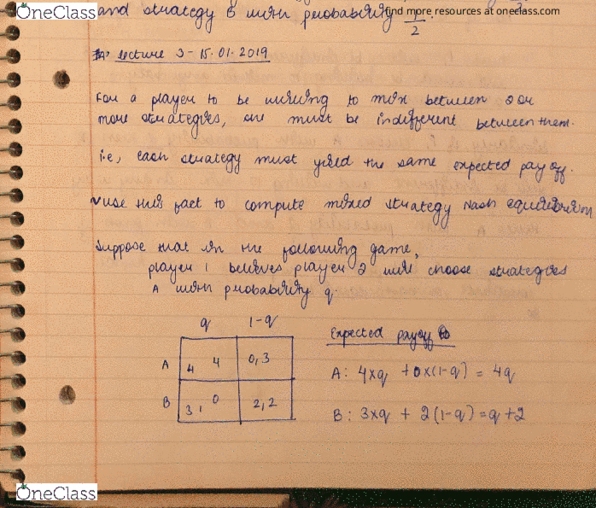 OneClass
find more resources at oneclass.com
and strategy B with probability 1/2.
Lecture 3 - 15.01.2019
For a player to be willing to mix between 2 or
more strategies, one must be indifferent between them.
i.e, each strategy must yield the same expected payoff.
use this fact to compute mixed strategy Nash equilibrium
Suppose that in the following game,
player 1 believes player 2 will choose strategies
A with probability q
q 1-q
A 4 4 0,3
B 3, 0 2,2
Expected payoff to
A: 4xq + 0x(1-q) = 4q
B: 3xq + 2(1-q) = q+2
OneClass